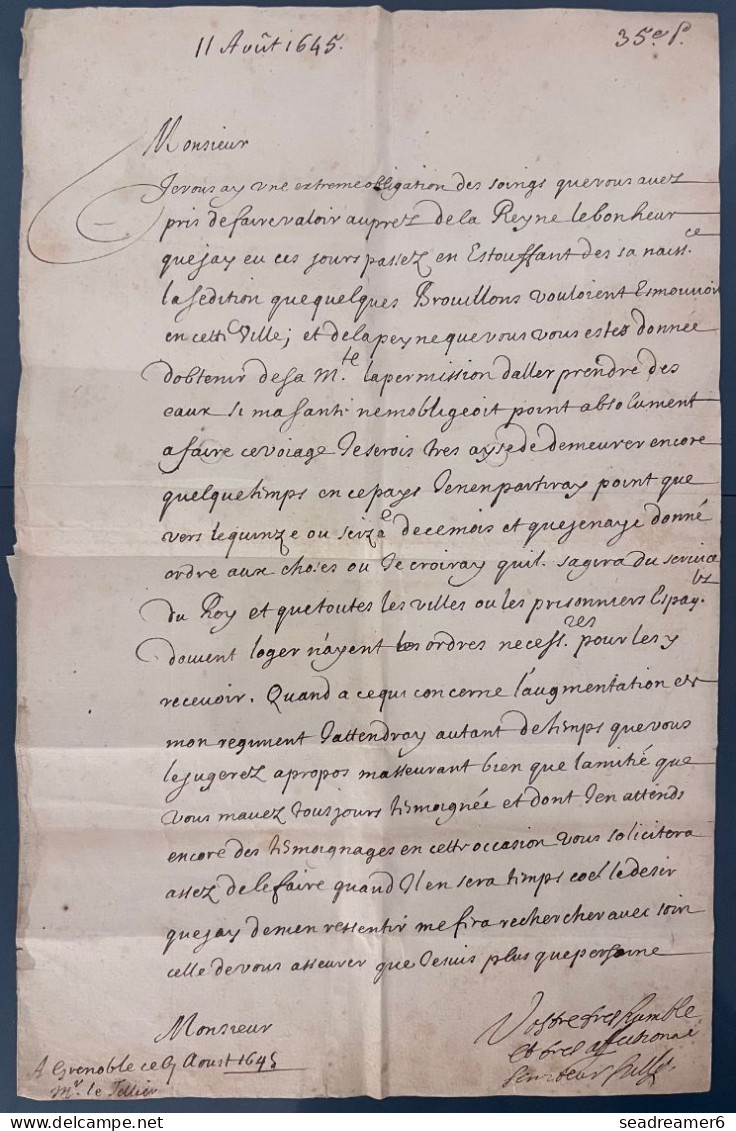 11 Août 1645.
35e p.
Monsieur
Je vous ay vne extreme obligation des soings que vous auez
pris de faire valoir auprez de la Reyne le bonheur
que jay eu ces jours passez en Estouffant des sa naiss.ce
la sedition que quelques Brouillons vouloient Esmouuoir
en cette Ville; et de la peyne que vous vous estes donnée
dobtenir de sa M.te la permission daller prendre des
eaux si ma santé ne mobligeoit point absolument
a faire ce voiage Je serois tres ayse de demeurer encore
quelque temps en ce pays Je nen partiray point que
vers le quinze ou seize de ce mois et que je naye donné
ordre aux choses ou Je croiray quil sagira du seruice
du Roy et que toutes les villes ou les prisonniers Espag.ls
doiuent loger n'ayent les ordres necess.res pour les y
receuoir. Quand a ce qui concerne l'augmentation de
mon regiment J'attendray autant de temps que vous
le jugerez a propos masseurant bien que lamitié que
vous mauez tousjours tesmoignée et dont J'en attends
encore des tesmoignages en cette occasion vous solicitera
assez de le faire quand Il en sera temps le desir
que jay de men ressentir me fera rechercher auec soin
celle de vous asseurer que Je suis plus que personne
Monsieur
Vostre tres humble
et tres affectionné
seruiteur
A Grenoble ce 9 Aoust 1645
Mr. le Tellier
seadreamer6